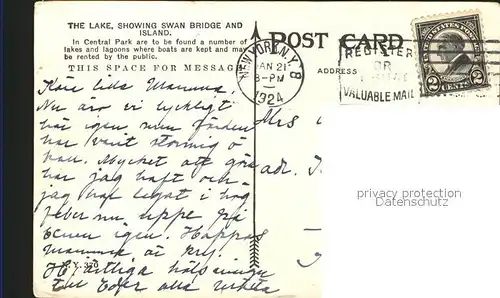 THE LAKE, SHOWING SWAN BRIDGE AND
ISLAND.
In Central Park are to be found a number of
lakes and lagoons where boats are kept and may
be rented by the public.
THIS SPACE FOR MESSAGE
POST CARD
ADDRESS
NEW YORK, N.Y. 8
JAN 21
8-PM
1924
REGISTER
OR
VALUABLE MAIL
UNITED STATES POSTAGE
2 CENTS 2
Kära lilla Mamma.
Nu äro vi lyckligt
här igen men färden
har varit stormig ö
hav. Mycket att göra
jag har haft och
jag har legat i hög
feber nu uppe på
benen igen. Hoppas
Mamma är kry.
Hjärtliga hälsningar
till Eder alla
Mrs
adr.
privacy protection
Datenschutz